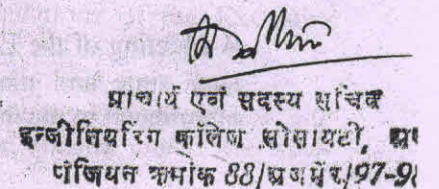 प्राचार्य एवं सदस्य सचिव
इन्जीनियरिंग कॉलेज सोसायटी,
पंजियन क्रमांक 88/अजमेर/97-98